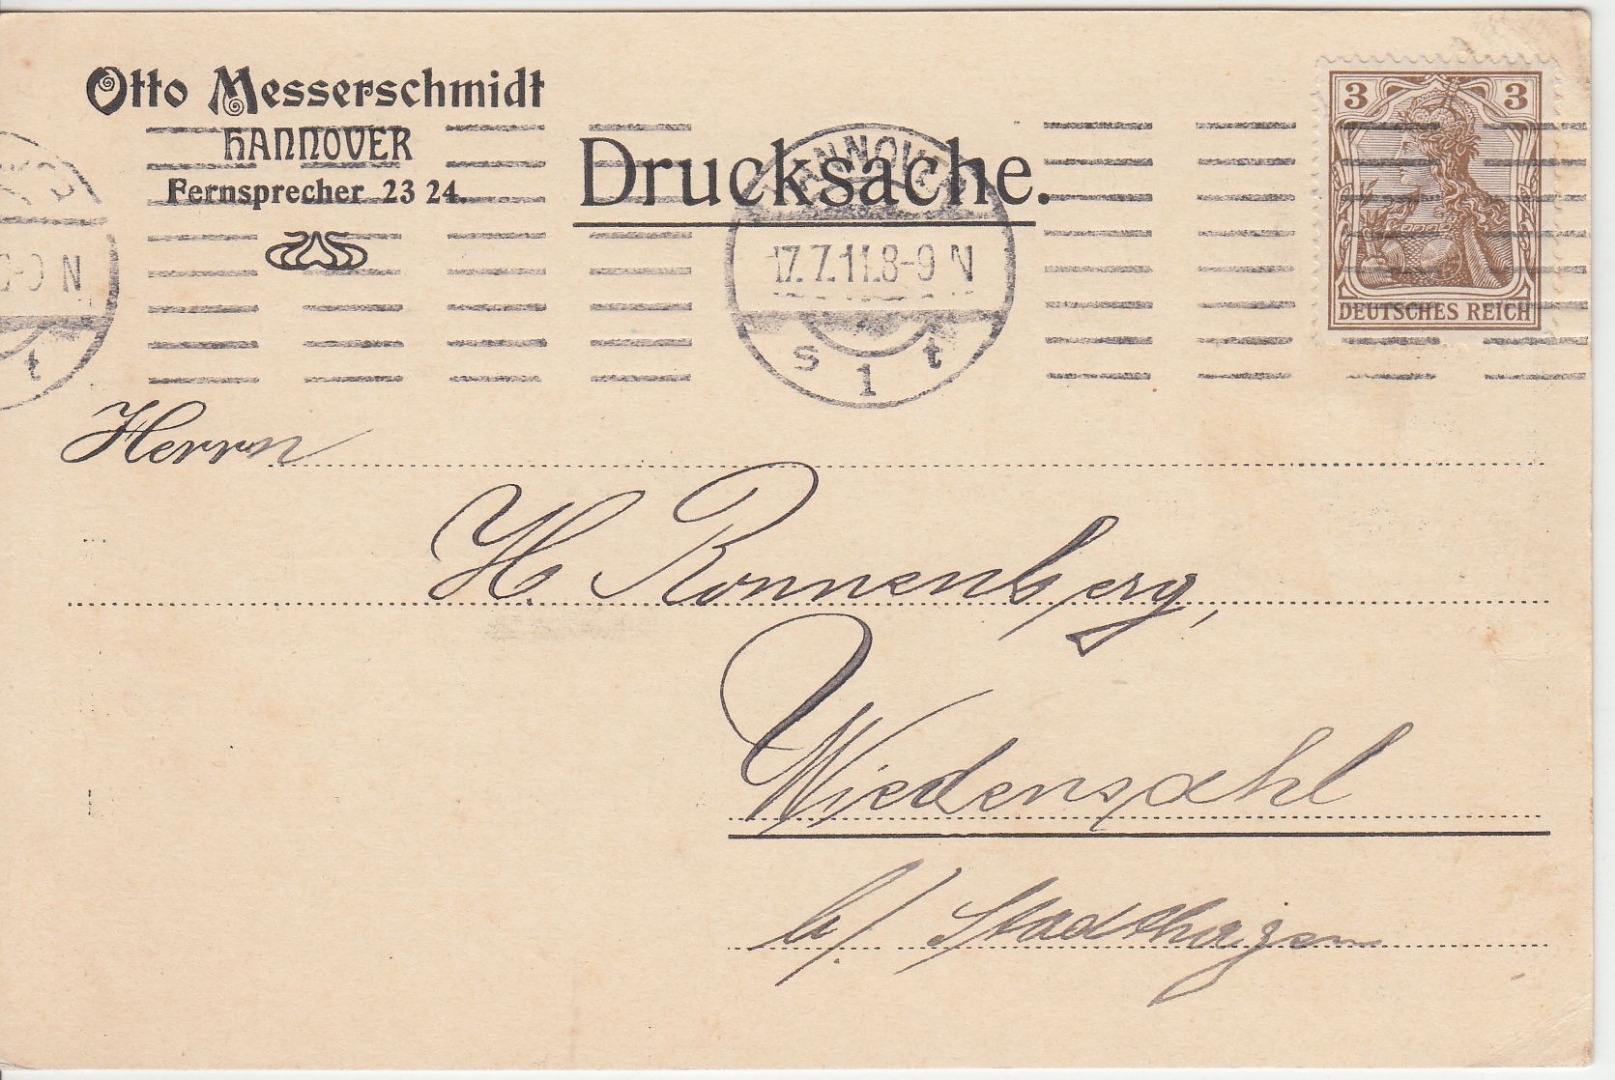 Otto Messerschmidt
HANNOVER
Fernsprecher 23 24.
Drucksache.
HANNOVER
17.7.11.8-9 N
s 1 t
3 3
DEUTSCHES REICH
9 N
t
Herrn
H. Ronnenberg,
Wiedensahl
b/ Stadthagen